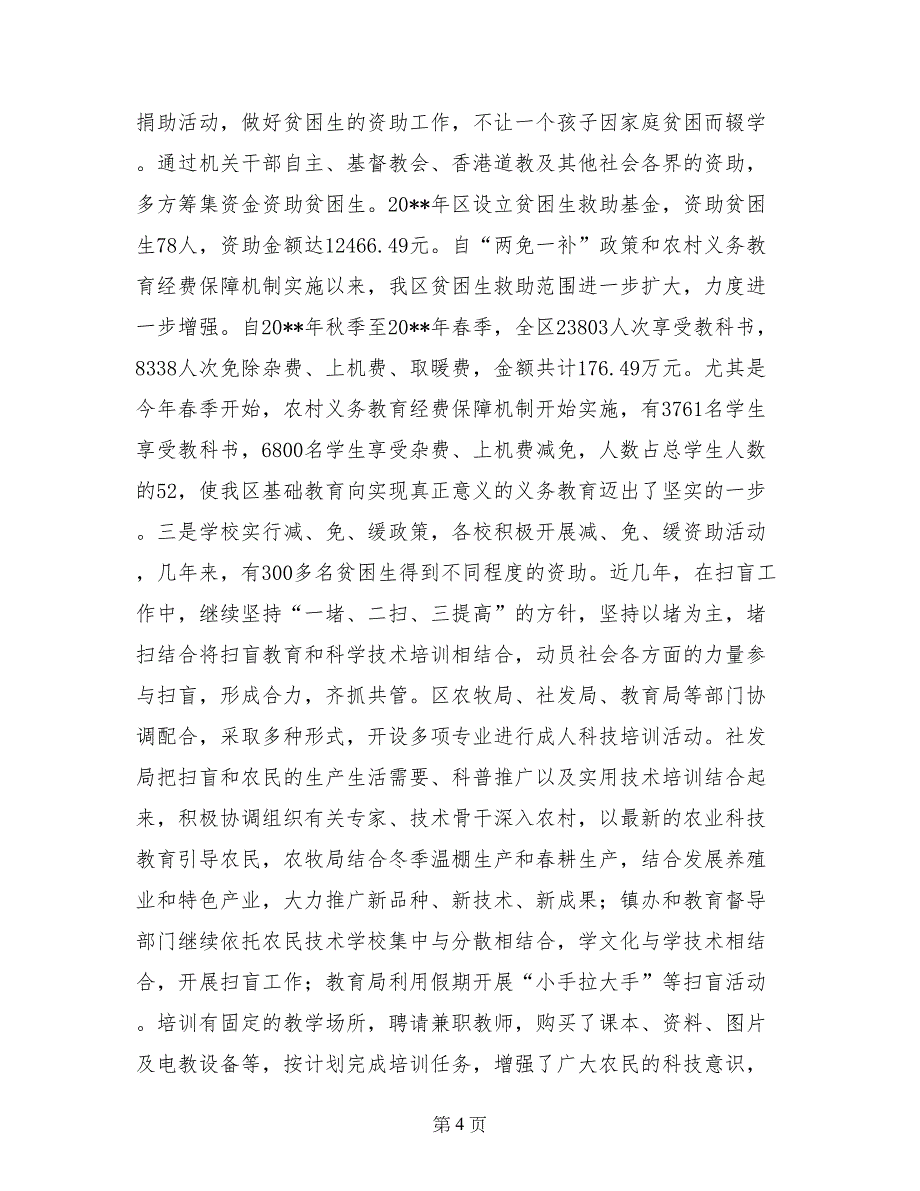 捐助活动，做好贫困生的资助工作，不让一个孩子因家庭贫困而辍学
。通过机关干部自主、基督教会、香港道教及其他社会各界的资助，
多方筹集资金资助贫困生。20**年区设立贫困生救助基金，资助贫困
生78人，资助金额达12466.49元。自“两免一补”政策和农村义务教
育经费保障机制实施以来，我区贫困生救助范围进一步扩大，力度进
一步增强。自20**年秋季至20**年春季，全区23803人次享受教科书，
8338人次免除杂费、上机费、取暖费，金额共计176.49万元。尤其是
今年春季开始，农村义务教育经费保障机制开始实施，有3761名学生
享受教科书，6800名学生享受杂费、上机费减免，人数占总学生人数
的52，使我区基础教育向实现真正意义的义务教育迈出了坚实的一步
。三是学校实行减、免、缓政策，各校积极开展减、免、缓资助活动
，几年来，有300多名贫困生得到不同程度的资助。近几年，在扫盲工
作中，继续坚持“一堵、二扫、三提高”的方针，坚持以堵为主，堵
扫结合将扫盲教育和科学技术培训相结合，动员社会各方面的力量参
与扫盲，形成合力，齐抓共管。区农牧局、社发局、教育局等部门协
调配合，采取多种形式，开设多项专业进行成人科技培训活动。社发
局把扫盲和农民的生产生活需要、科普推广以及实用技术培训结合起
来，积极协调组织有关专家、技术骨干深入农村，以最新的农业科技
教育引导农民，农牧局结合冬季温棚生产和春耕生产，结合发展养殖
业和特色产业，大力推广新品种、新技术、新成果；镇办和教育督导
部门继续依托农民技术学校集中与分散相结合，学文化与学技术相结
合，开展扫盲工作；教育局利用假期开展“小手拉大手”等扫盲活动
。培训有固定的教学场所，聘请兼职教师，购买了课本、资料、图片
及电教设备等，按计划完成培训任务，增强了广大农民的科技意识，
第 4 页